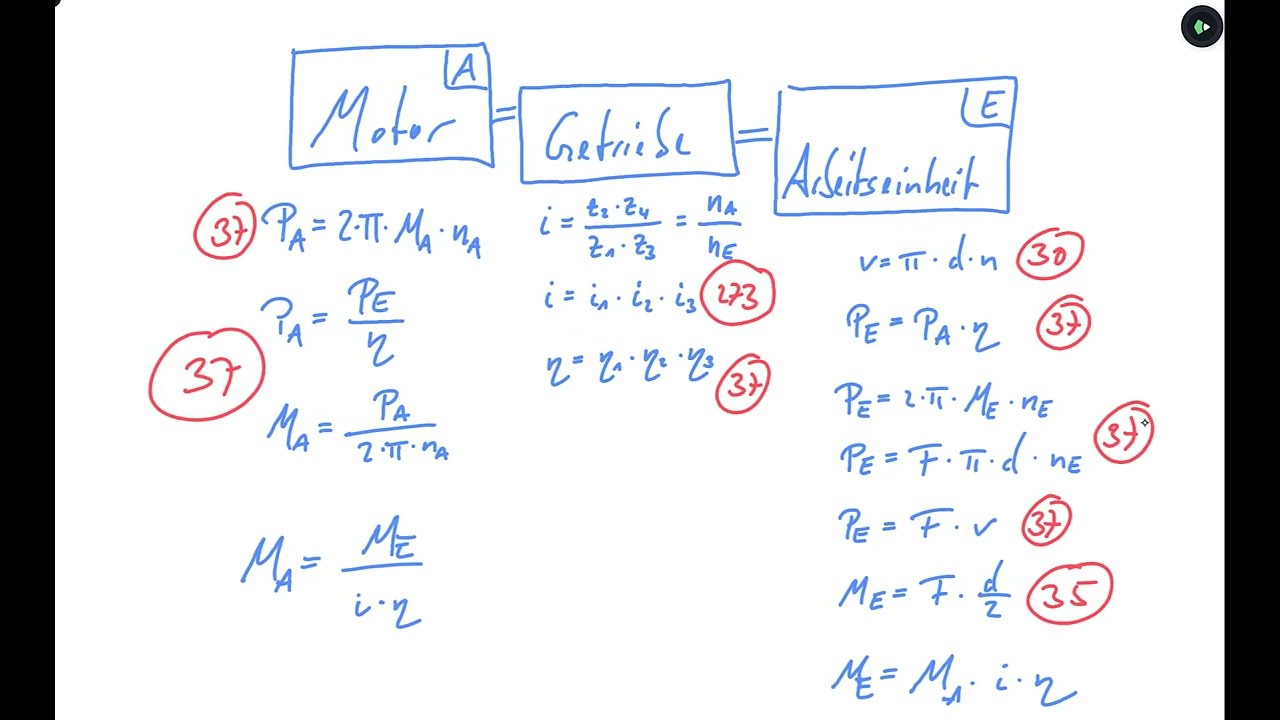 A
Motor = Getriebe = Arbeitseinheit
E
37 P_A = 2·π·M_A·n_A
P_A = P_E / η
37
M_A = P_A / 2·π·n_A
M_A = M_E / i·η
i = z₂·z₄ / z₁·z₃ = n_A / n_E
i = i₁·i₂·i₃ 273
η = η₁·η₂·η₃ 37
v = π·d·n 30
P_E = P_A·η 37
P_E = 2·π·M_E·n_E
P_E = F·π·d·n_E 37
P_E = F·v 37
M_E = F·d/2 35
M_E = M_A·i·η